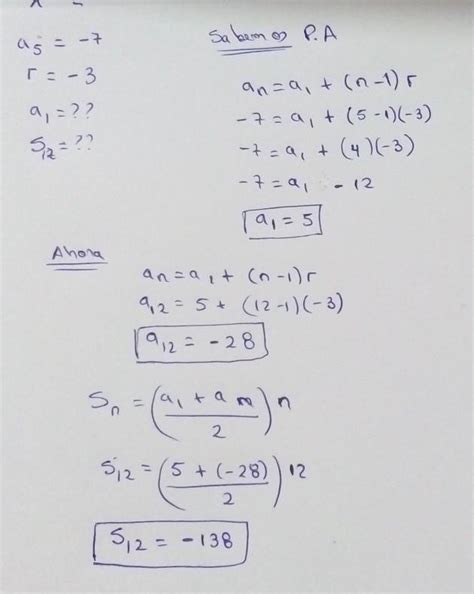 a5 = -7
r = -3
a1 = ??
S12 = ??
Sabemos P.A
an = a1 + (n-1)r
-7 = a1 + (5-1)(-3)
-7 = a1 + (4)(-3)
-7 = a1 - 12
a1 = 5
Ahora
an = a1 + (n-1)r
a12 = 5 + (12-1)(-3)
a12 = -28
Sn = (a1 + an / 2) n
S12 = (5 + (-28) / 2) 12
S12 = -138